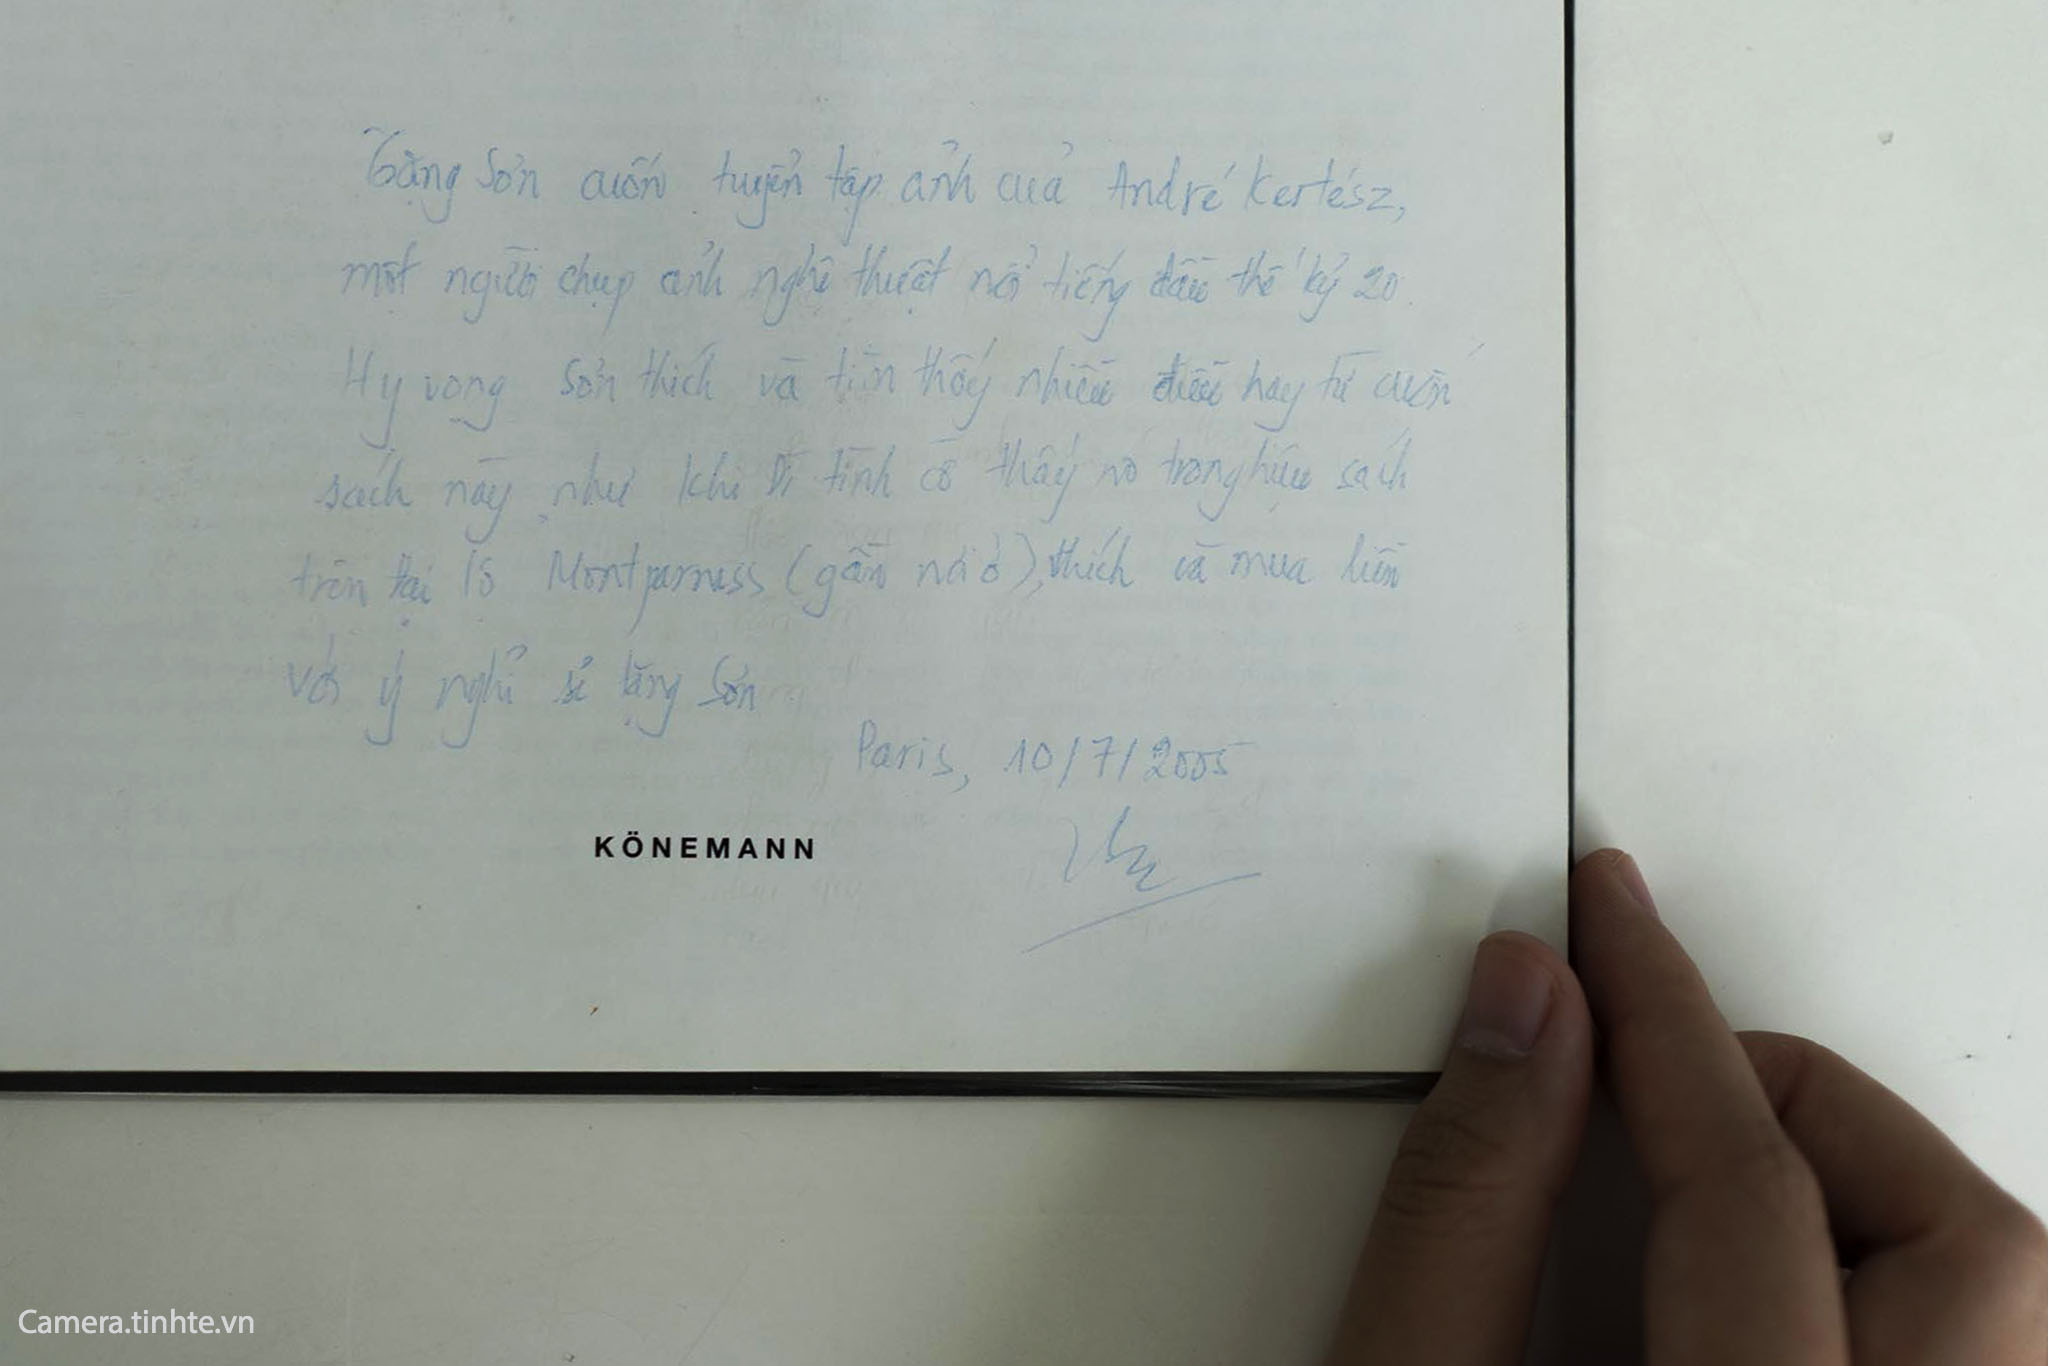 Tặng Sơn cuốn tuyển tập ảnh của André Kertész,
một người chụp ảnh nghệ thuật nổi tiếng đầu thế kỷ 20.
Hy vọng Sơn thích và tìm thấy nhiều điều hay từ cuốn
sách này như khi Dì tình cờ thấy nó trong hiệu sách
trên đại lộ Montparnass (gần nơi ở), thích và mua liền
với ý nghĩ sẽ tặng Sơn
Paris, 10/7/2005
KÖNEMANN
Camera.tinhte.vn